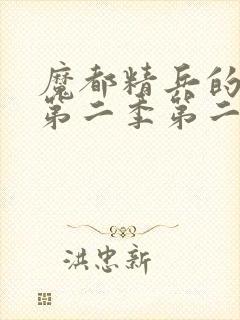 魔都精兵的
第二季第二
洪忠新